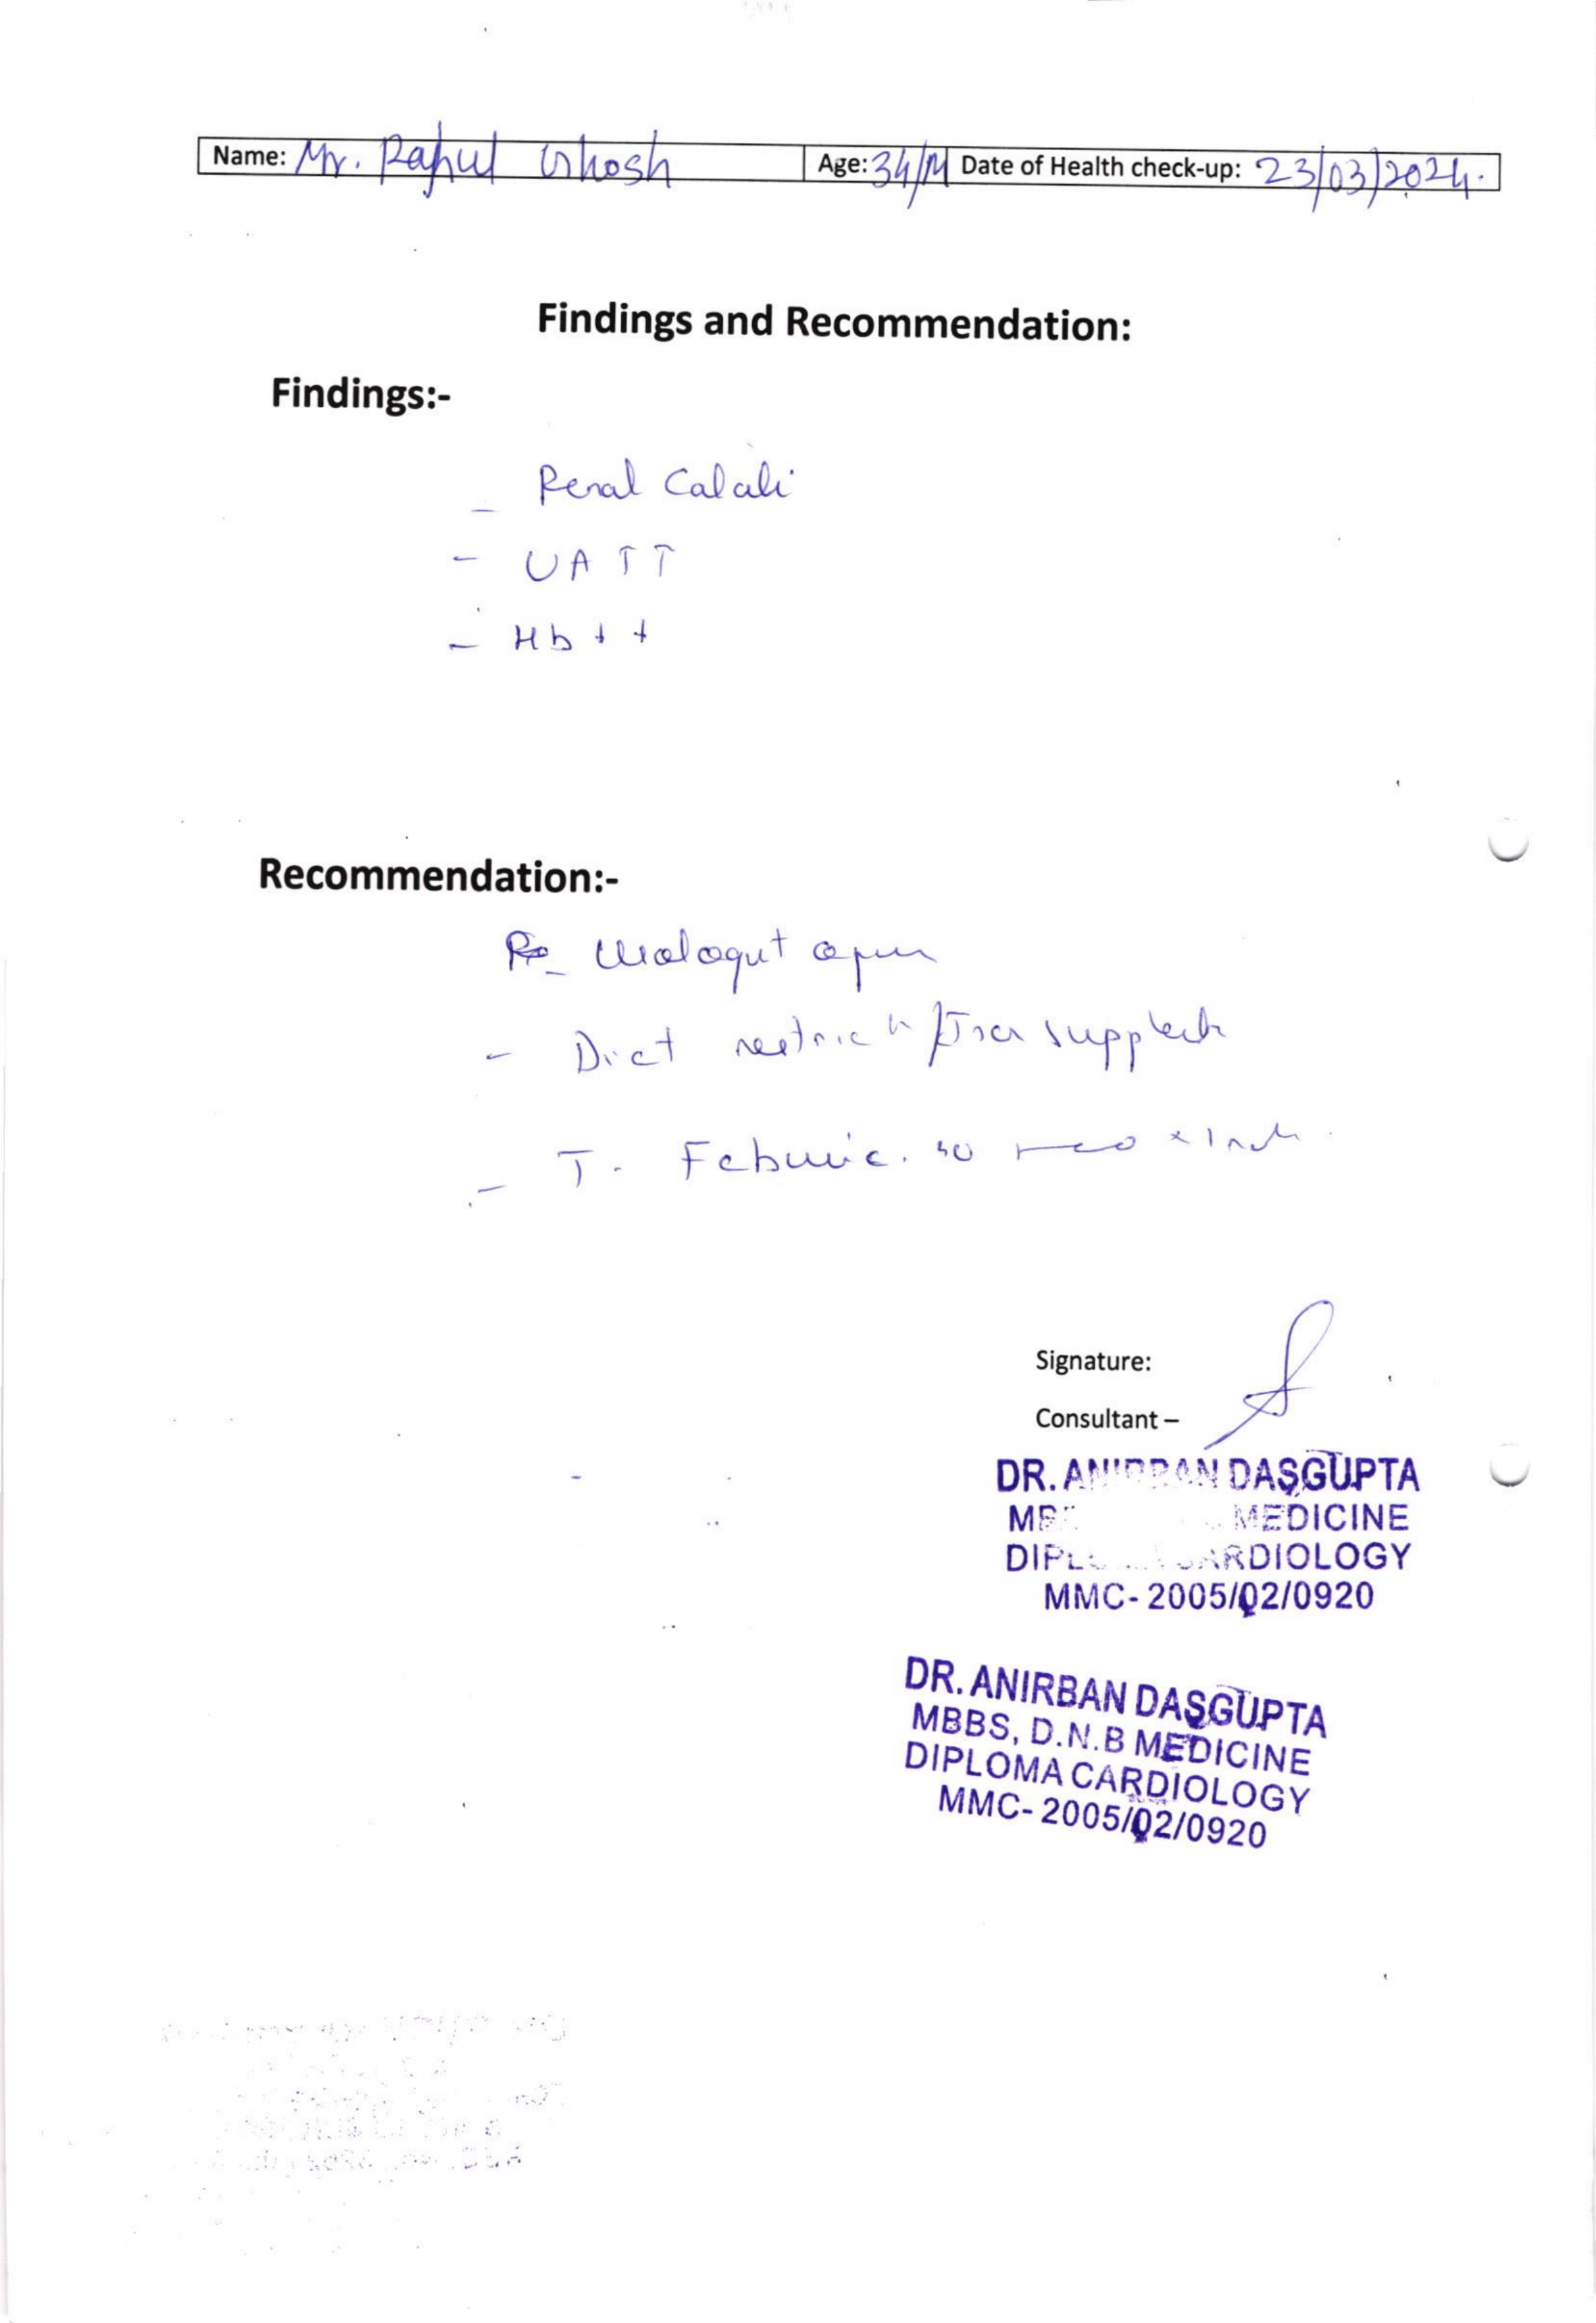 Name: Mr. Rahul Ghosh Age: 34/M Date of Health check-up: 23/03/2024.
Findings and Recommendation:
Findings:-
- Renal Calculi
- UA ↑↑
- Hb ↓↓
Recommendation:-
Urologist opin
- Diet restrict /
- T. Feburic. 40
Signature:
Consultant –
DR. ANIRBAN DASGUPTA
MEDICINE
CARDIOLOGY
MMC- 2005/02/0920
DR. ANIRBAN DASGUPTA
MBBS, D.N.B MEDICINE
DIPLOMA CARDIOLOGY
MMC- 2005/02/0920